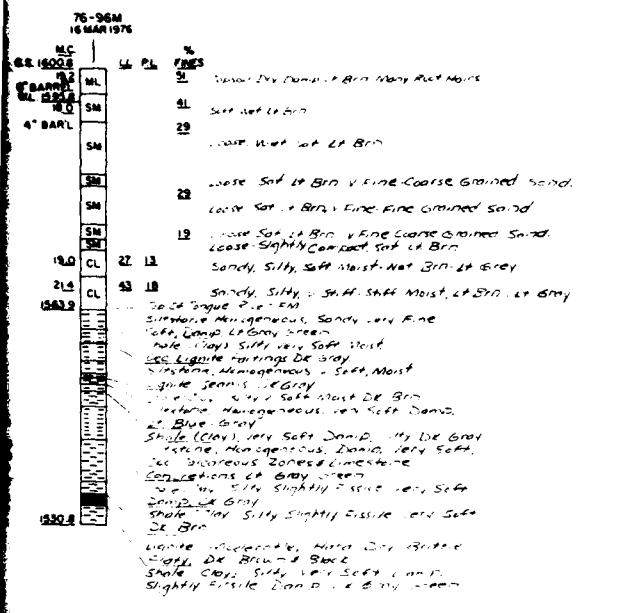 76-96M
16 MAR 1976
M.C. LL P.L. % FINES
G.S. 1600.8
19.2 ML 51 Damp Lt Brn Many Root Hairs
BARREL
W.L.
18.0 SM 41 Soft Wet Lt Brn
4" BAR'L
29
SM Loose Wet Sat Lt Brn
SM Loose Sat Lt Brn V Fine-Coarse Grained Sand.
29
SM Loose Sat Lt Brn V Fine-Fine Grained Sand
SM 19 Loose Sat Lt Brn V Fine Coarse Grained Sand.
SM Loose-Slightly Compact, Sat Lt Brn
19.0 CL 27 13 Sandy, Silty, Soft Moist-Wet Brn-Lt Grey
21.4 CL 43 18 Sandy, Silty, V Stiff-Stiff Moist, Lt Brn-Lt Gray
1583.9 Tongue River FM
Siltstone Homogeneous, Sandy Very Fine
Soft, Damp Lt Gray Green
Shale (Clay) Silty Very Soft Moist
Occ Lignite Partings Dk Gray
Siltstone, Homogeneous V Soft, Moist
Lignite Seams Dk Gray
Silty V Soft Moist Dk Brn
Siltstone Homogeneous, Very Soft Damp,
Lt Blue-Gray
Shale (Clay), Very Soft Damp, Silty Dk Gray
Siltstone, Homogeneous, Damp, Very Soft,
Occ Calcareous Zones & Limestone
Concretions Lt Gray Green
Silty Slightly Fissile Very Soft
Damp Dk Gray
Shale Clay Silty Slightly Fissile Very Soft
Dk Brn
1550.8
Lignite Hard Dry Brittle
Platy, Dk Brown & Black
Shale Clay, Silty Very Soft Damp
Slightly Fissile Damp Gray Green